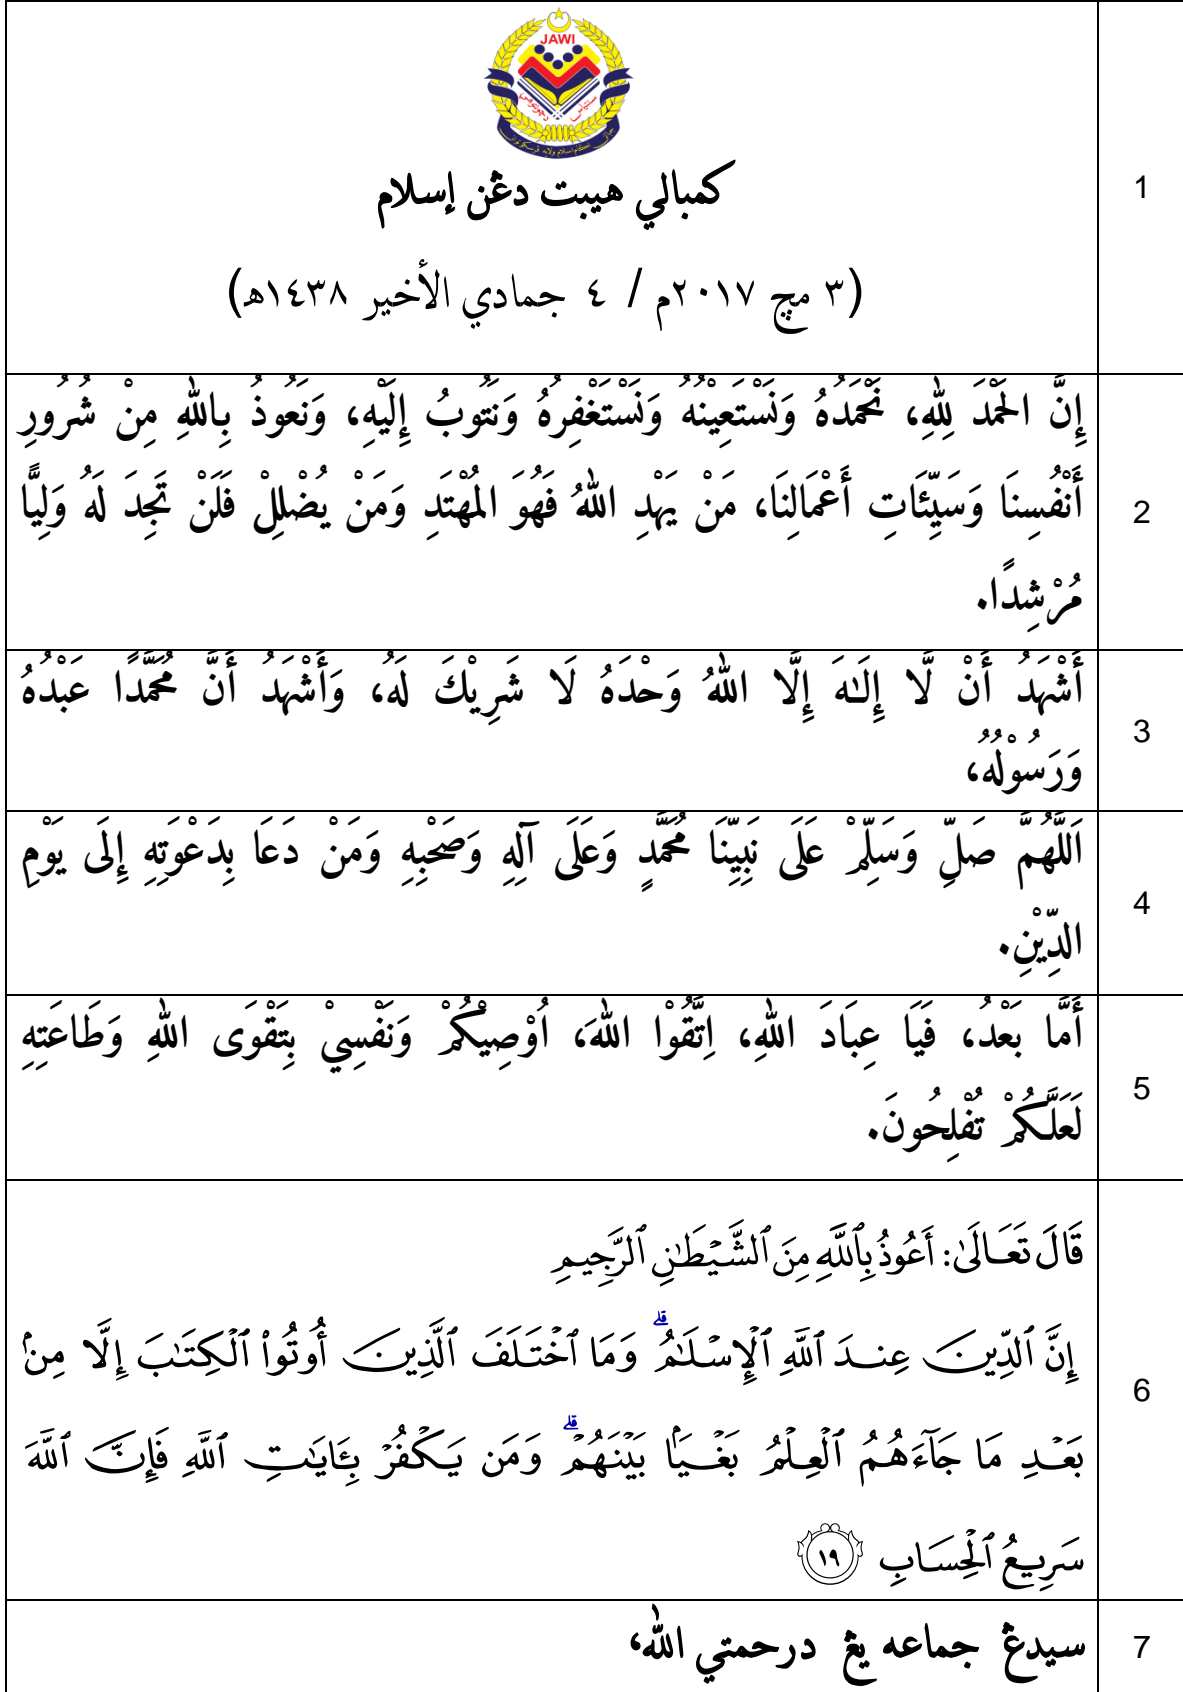 JAWI
كمبالي هيبت دڠن إسلام
1
(٣ مچ ٢٠١٧م / ٤ جمادي الأخير ١٤٣٨ھ)
إِنَّ الحَمْدَ لِلّٰهِ، نَحْمَدُهُ وَنَسْتَعِيْنُهُ وَنَسْتَغْفِرُهُ وَنَتُوبُ إِلَيْهِ، وَنَعُوذُ بِاللّٰهِ مِنْ شُرُورِ
أَنْفُسِنَا وَسَيِّئَاتِ أَعْمَالِنَا، مَنْ يَهْدِ اللّٰهُ فَهُوَ المُهْتَدِ وَمَنْ يُضْلِلْ فَلَنْ تَجِدَ لَهُ وَلِيًّا
2
مُرْشِدًا.
أَشْهَدُ أَنْ لَّا إِلَـٰهَ إِلَّا اللّٰهُ وَحْدَهُ لَا شَرِيْكَ لَهُ، وَأَشْهَدُ أَنَّ مُحَمَّدًا عَبْدُهُ
3
وَرَسُوْلُهُ،
اَللّٰهُمَّ صَلِّ وَسَلِّمْ عَلَى نَبِيِّنَا مُحَمَّدٍ وَعَلَى آلِهِ وَصَحْبِهِ وَمَنْ دَعَا بِدَعْوَتِهِ إِلَى يَوْمِ
4
الدِّيْنِ.
أَمَّا بَعْدُ، فَيَا عِبَادَ اللّٰهِ، اِتَّقُوْا اللّٰهَ، اُوْصِيْكُمْ وَنَفْسِيْ بِتَقْوَى اللّٰهِ وَطَاعَتِهِ
5
لَعَلَّكُمْ تُفْلِحُونَ.
قَالَ تَعَالَىٰ: أَعُوذُ بِٱللَّهِ مِنَ ٱلشَّيْطَٰنِ ٱلرَّجِيمِ
إِنَّ ٱلدِّينَ عِندَ ٱللَّهِ ٱلْإِسْلَٰمُ ۗ وَمَا ٱخْتَلَفَ ٱلَّذِينَ أُوتُوا۟ ٱلْكِتَٰبَ إِلَّا مِنۢ
6
بَعْدِ مَا جَآءَهُمُ ٱلْعِلْمُ بَغْيًۢا بَيْنَهُمْ ۗ وَمَن يَكْفُرْ بِـَٔايَٰتِ ٱللَّهِ فَإِنَّ ٱللَّهَ
سَرِيعُ ٱلْحِسَابِ ١٩
سيدڠ جماعه يڠ درحمتي الله،
7